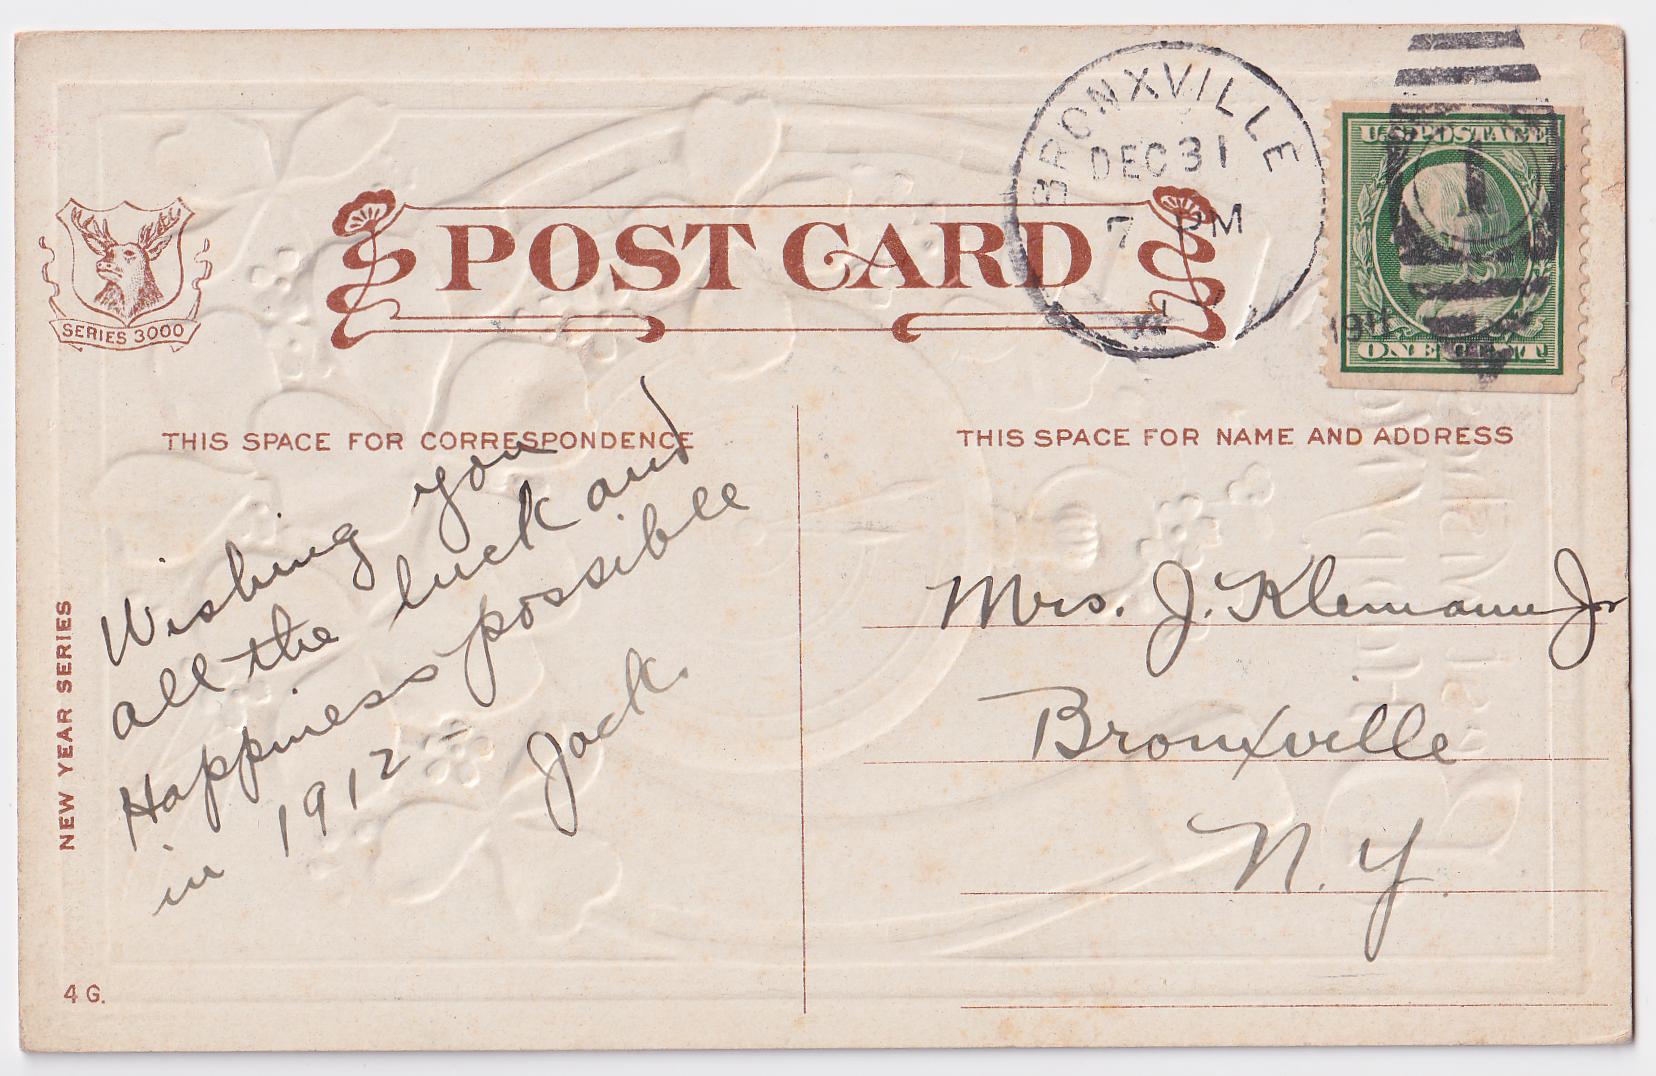 BRONXVILLE
DEC 31
7 PM
1911
U.S. POSTAGE
1
ONE CENT
SERIES 3000
POST CARD
THIS SPACE FOR CORRESPONDENCE
THIS SPACE FOR NAME AND ADDRESS
NEW YEAR SERIES
4 G.
Wishing you
all the luck and
Happiness possible
in 1912 –
Jack.
Mrs. J. Klemann Jr
Bronxville
N. Y.